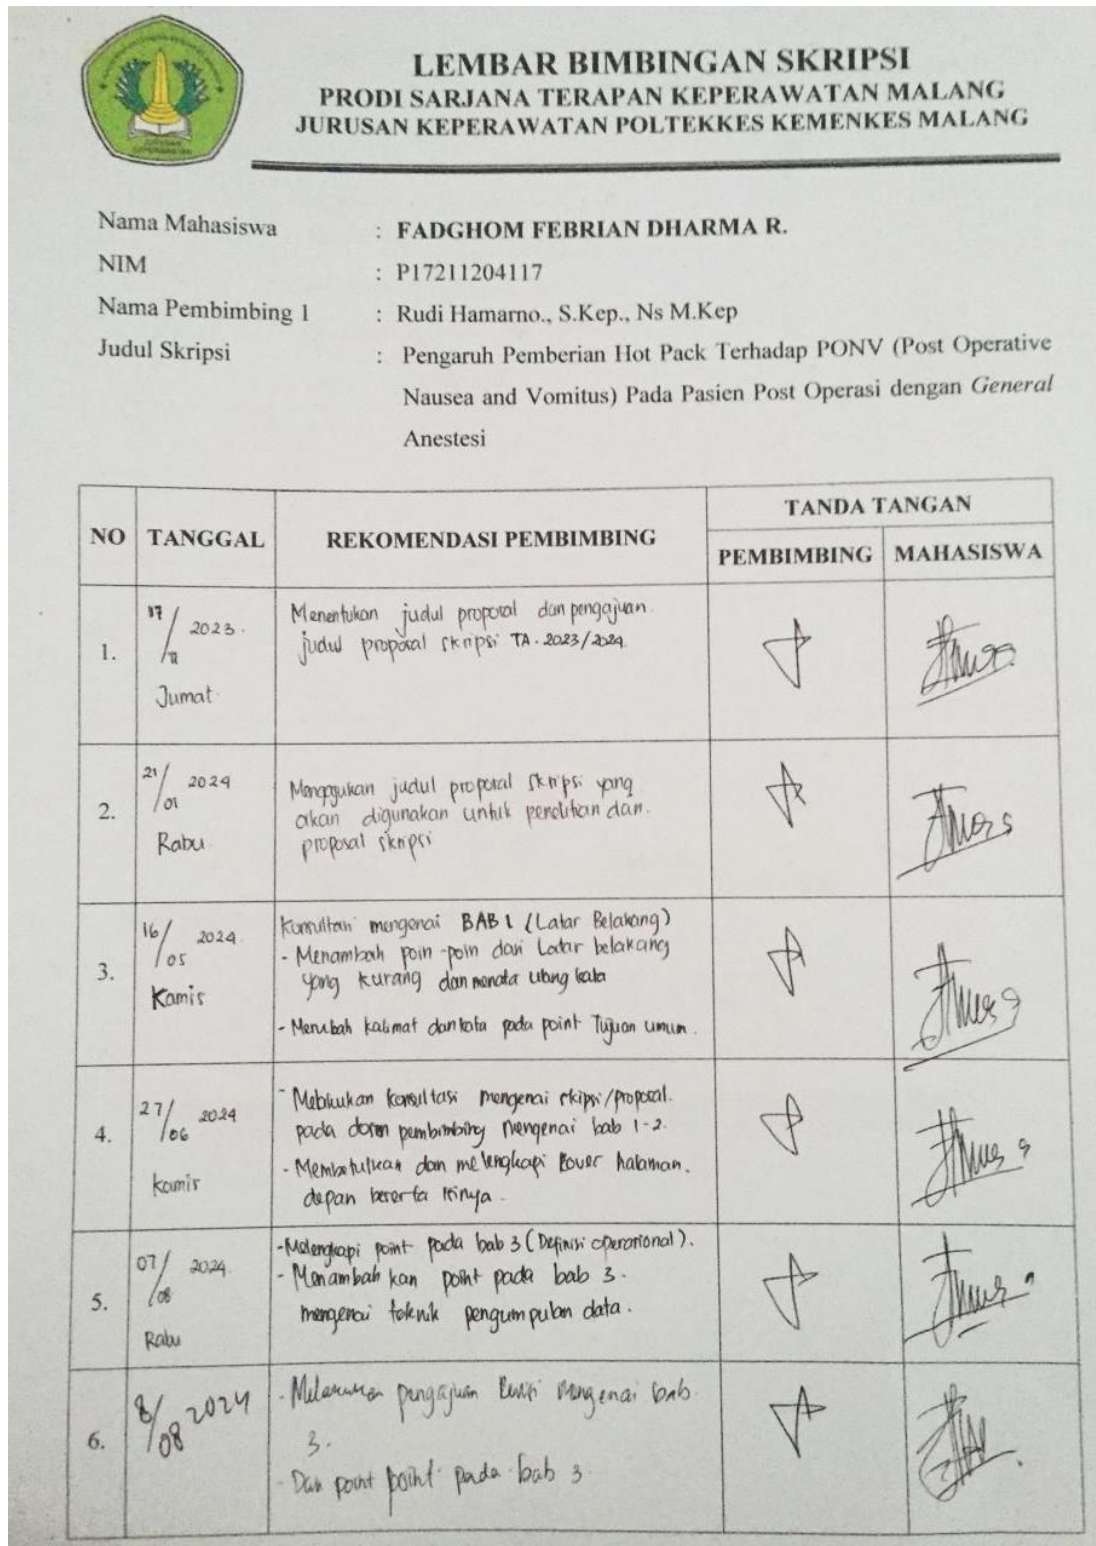 LEMBAR BIMBINGAN SKRIPSI
PRODI SARJANA TERAPAN KEPERAWATAN MALANG
JURUSAN KEPERAWATAN POLTEKKES KEMENKES MALANG
Nama Mahasiswa : FADGHOM FEBRIAN DHARMA R.
NIM : P17211204117
Nama Pembimbing 1 : Rudi Hamarno., S.Kep., Ns M.Kep
Judul Skripsi : Pengaruh Pemberian Hot Pack Terhadap PONV (Post Operative
Nausea and Vomitus) Pada Pasien Post Operasi dengan General
Anestesi
NO TANGGAL REKOMENDASI PEMBIMBING TANDA TANGAN
PEMBIMBING MAHASISWA
1. 17/ 2023.
Jumat
Menentukan judul proposal dan pengajuan.
judul proposal skripsi TA. 2023/2024.
2. 21/01 2024
Rabu
judul proposal skripsi yang
akan digunakan untuk penelitian dan.
proposal skripsi
3. 16/05 2024.
Kamis
Konsultasi mengenai BAB 1 (Latar Belakang)
- Menambah poin-poin dari Latar belakang
yang kurang dan menata ulang kata
- Merubah kalimat dan kata pada point Tujuan umum.
4. 27/06 2024
Kamis
- konsultasi mengenai skipsi/proposal.
pada dosen pembimbing mengenai bab 1-2.
- Membetulkan dan melengkapi cover halaman.
depan beserta isinya.
5. 07/08 2024.
Rabu
- Melengkapi point pada bab 3 (Definisi operasional).
- Menambah kan point pada bab 3.
mengenai teknik pengumpulan data.
6. 8/08 2024
- Melakukan pengajuan Revisi mengenai bab
3.
- Dan point point pada bab 3.